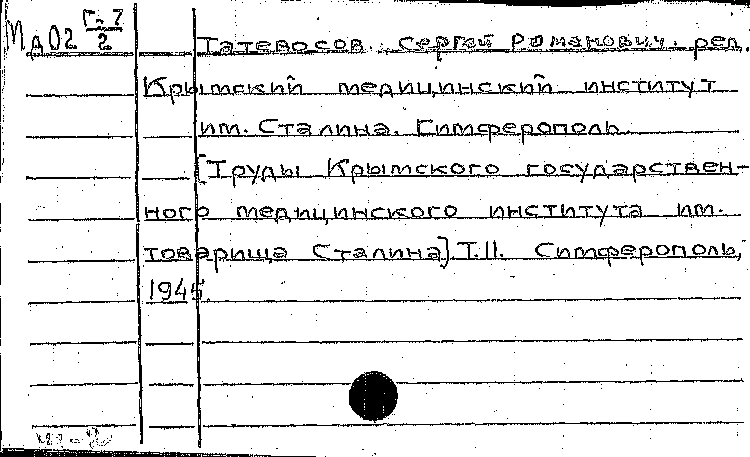 МД02 Г-7/2
Татевосов. Сергей Романович. ред.
Крымский медицинский институт
им. Сталина. Симферополь.
[Труды Крымского государствен-
ного медицинского института им.
товарища Сталина]. Т.II. Симферополь,
1945.